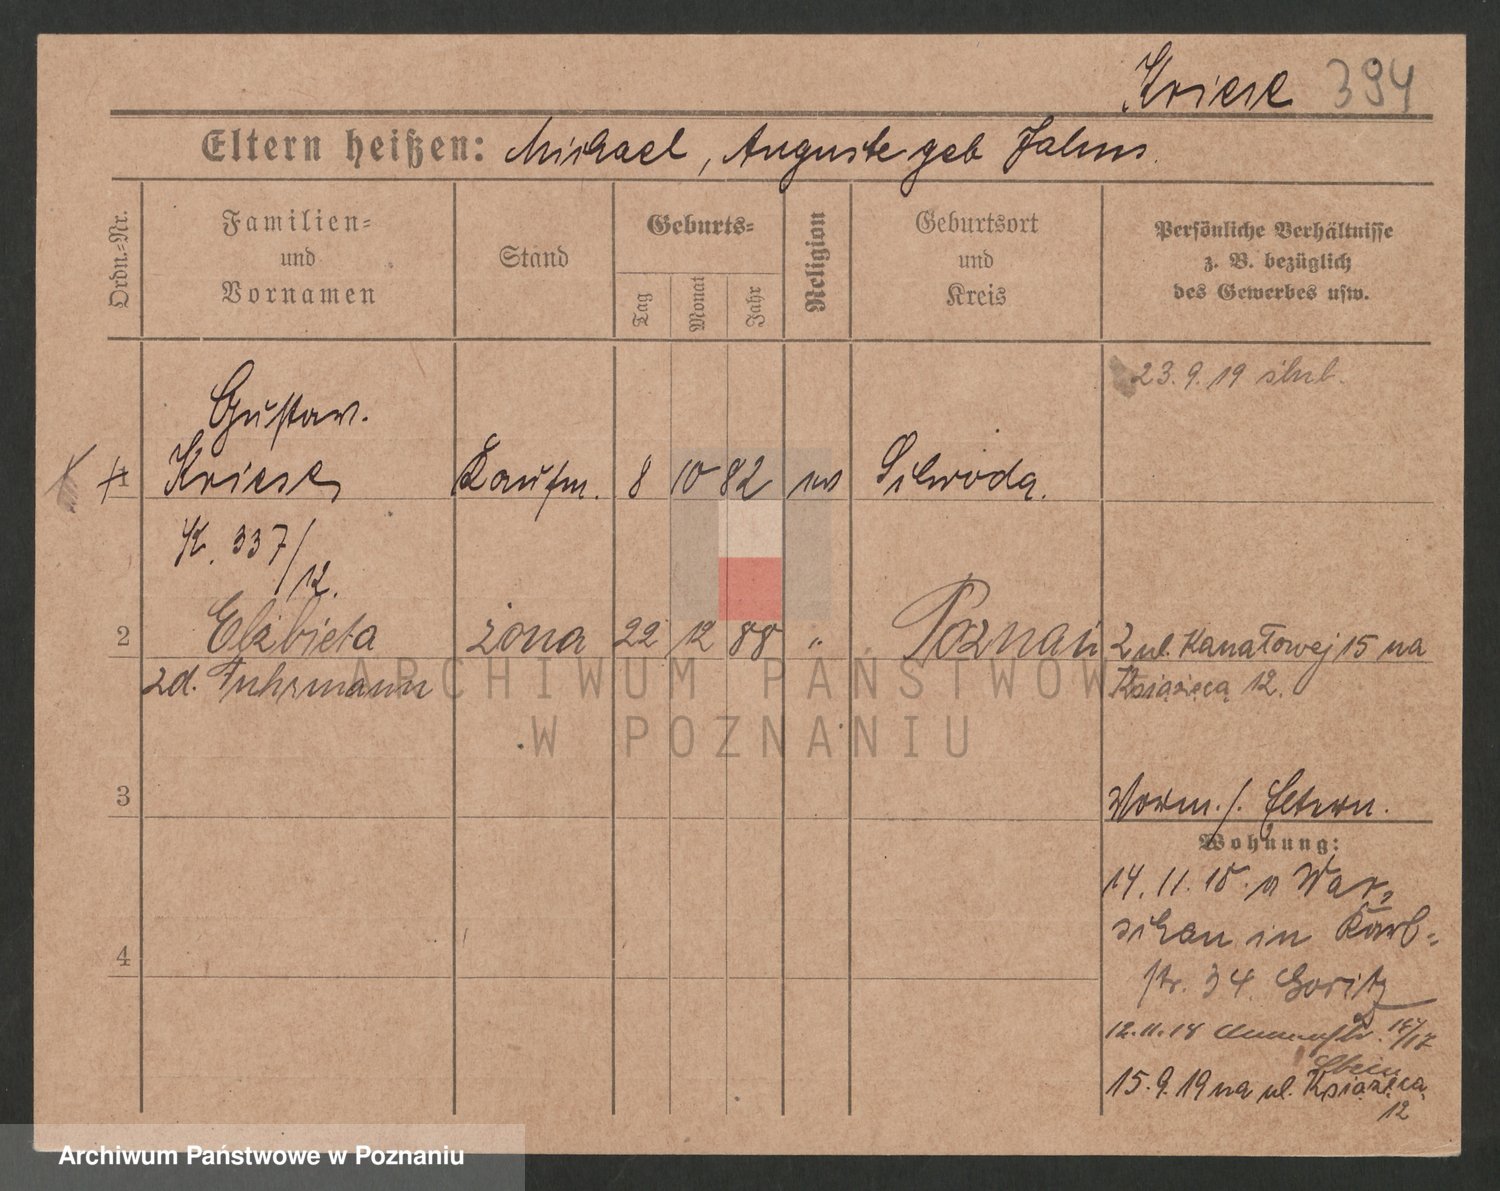 Kriese 394
Eltern heißen: Michael, Auguste geb Jahns.
Ordn.-Nr.
Familien-
und
Vornamen
Stand
Geburts-
Tag
Monat
Jahr
Religion
Geburtsort
und
Kreis
Persönliche Verhältnisse
z. B. bezüglich
des Gewerbes usw.
23.9.19 ślub.
Gustav.
1 Kriese Kaufm. 8 10 82 ev
K. 337/
12.
2 Elżbieta żona 22 12 88 " Poznań 2 ul. Kanałowej 15 na
zd. Fuhrmann Książęcą 12.
ARCHIWUM PAŃSTWOWE
W POZNANIU
3
Vorm. s. Eltern.
Wohnung:
4
14.11.15. n War-
schau in Karl-
str. 34. Goritz
12.11.18
15.9.19 na ul. Książęcą
12
Archiwum Państwowe w Poznaniu